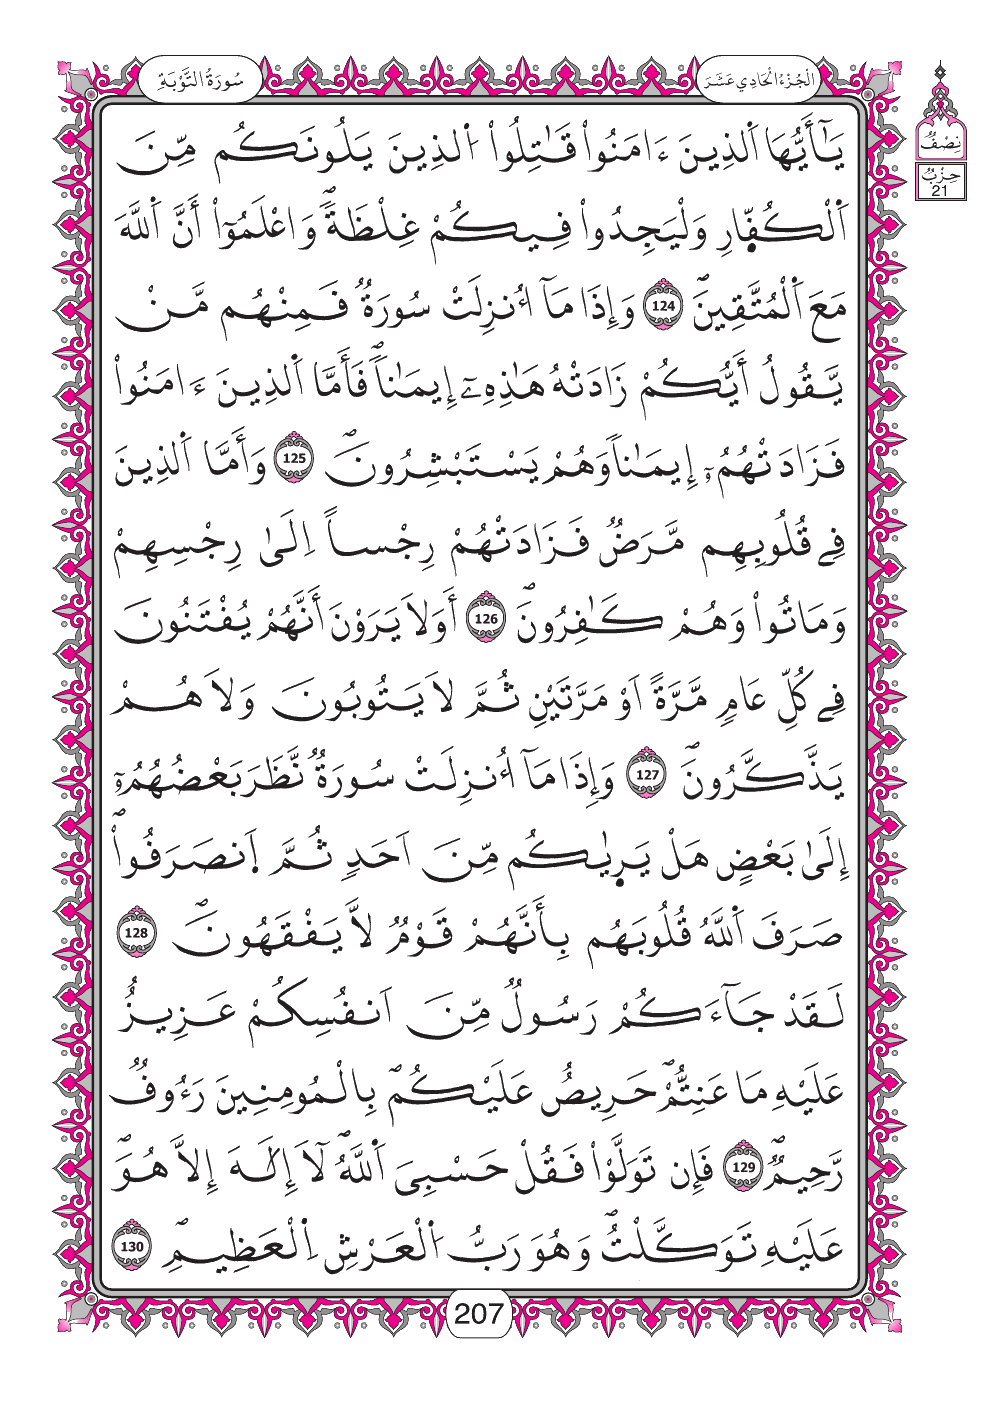 الْجُزْءُ الْحَادِي عَشَرَ
سُورَةُ التَّوْبَةِ
نِصْفُ
حِزْبُ
21
يَٰٓأَيُّهَا اَ۬لذِينَ ءَامَنُواْ قَٰتِلُواْ اُ۬لذِينَ يَلُونَكُم مِّنَ
اَ۬لْكُفّ۪ارِ وَلْيَجِدُواْ فِيكُمْ غِلْظَةٗۖ وَاعْلَمُوٓاْ أَنَّ اَ۬للَّهَ
مَعَ اَ۬لْمُتَّقِينَۖ 124 وَإِذَا مَآ أُنزِلَتْ سُورَةٞ فَمِنْهُم مَّنْ
يَّقُولُ أَيُّكُمْ زَادَتْهُ هَٰذِهِۦٓ إِيمَٰناٗۖ فَأَمَّا اَ۬لذِينَ ءَامَنُواْ
فَزَادَتْهُمُۥٓ إِيمَٰناٗ وَهُمْ يَسْتَبْشِرُونَۖ 125 وَأَمَّا اَ۬لذِينَ
فِے قُلُوبِهِم مَّرَضٞ فَزَادَتْهُمْ رِجْساً اِلَىٰ رِجْسِهِمْ
وَمَاتُواْ وَهُمْ كَٰفِرُونَۖ 126 أَوَلَا يَرَوْنَ أَنَّهُمْ يُفْتَنُونَ
فِے كُلِّ عَامٖ مَّرَّةً اَوْ مَرَّتَيْنِ ثُمَّ لَا يَتُوبُونَ وَلَا هُمْ
يَذَّكَّرُونَۖ 127 وَإِذَا مَآ أُنزِلَتْ سُورَةٞ نَّظَرَ بَعْضُهُمُۥٓ
إِلَىٰ بَعْضٍ هَلْ يَر۪يٰكُم مِّنَ اَحَدٖ ثُمَّ اَ۪نصَرَفُواْۖ
صَرَفَ اَ۬للَّهُ قُلُوبَهُم بِأَنَّهُمْ قَوْمٞ لَّا يَفْقَهُونَۖ 128
لَقَدْ جَآءَكُمْ رَسُولٞ مِّنَ اَنفُسِكُمْ عَزِيزٌ
عَلَيْهِ مَا عَنِتُّمْۖ حَرِيصٌ عَلَيْكُمۖ بِالْمُومِنِينَ رَءُوفٞ
رَّحِيمٞۖ 129 فَإِن تَوَلَّوْاْ فَقُلْ حَسْبِيَ اَ۬للَّهُۖ لَآ إِلَٰهَ إِلَّا هُوَۖ
عَلَيْهِ تَوَكَّلْتُۖ وَهُوَ رَبُّ اُ۬لْعَرْشِ اِ۬لْعَظِيمِۖ 130
207